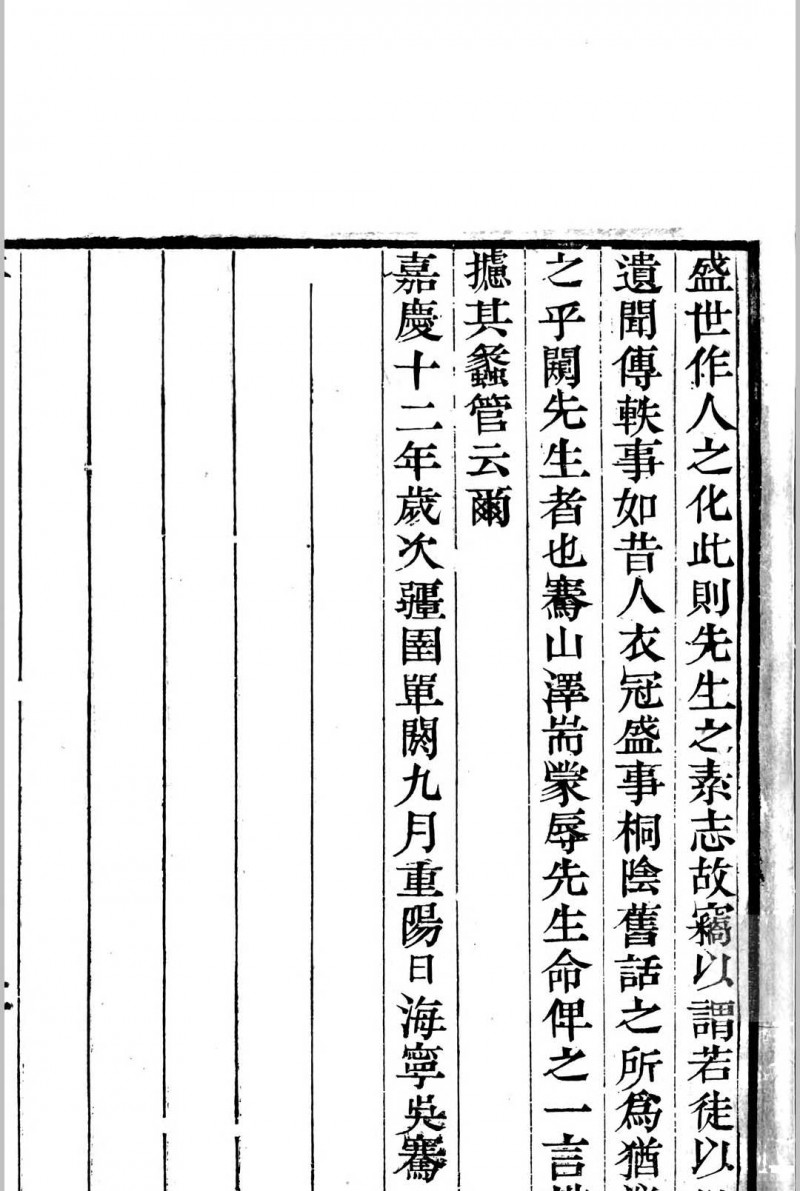 盛世作人之化此則先生之素志故竊以謂若徒以
遺聞傳軼事如昔人衣冠盛事桐陰舊話之所為猶
之乎闚先生者也騫山澤耑蒙辱先生命俾之一言
攄其蠡管云爾
嘉慶十二年歲次彊圉單閼九月重陽日海寧吳騫